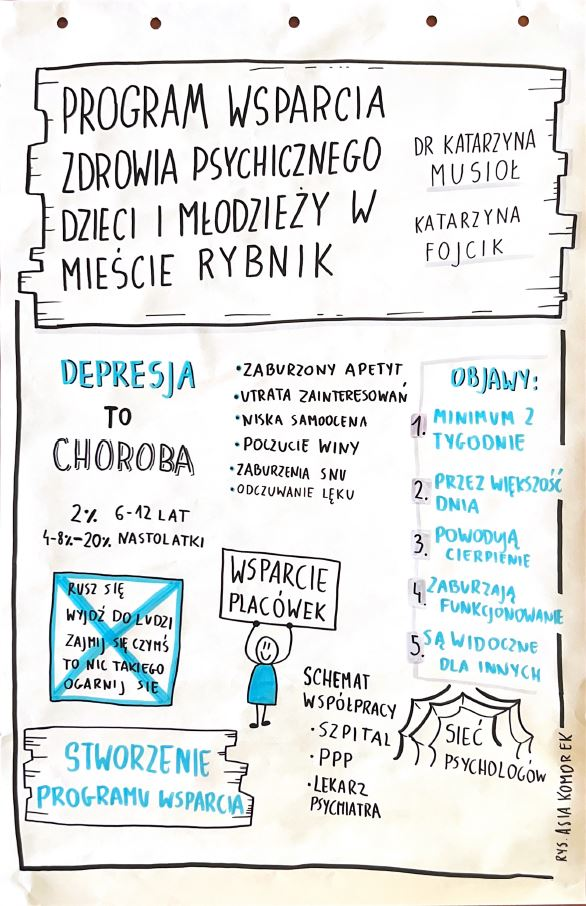 PROGRAM WSPARCIA
ZDROWIA PSYCHICZNEGO
DZIECI I MŁODZIEŻY W
MIEŚCIE RYBNIK
DR KATARZYNA
MUSIOŁ
KATARZYNA
FOJCIK
DEPRESJA
TO
CHOROBA
2% 6-12 LAT
4-8%-20% NASTOLATKI
•ZABURZONY APETYT
•UTRATA ZAINTERESOWAŃ
•NISKA SAMOOCENA
•POCZUCIE WINY
•ZABURZENIA SNU
•ODCZUWANIE LĘKU
OBJAWY:
1. MINIMUM 2
TYGODNIE
2. PRZEZ WIĘKSZOŚĆ
DNIA
3. POWODUJĄ
CIERPIENIE
4. ZABURZAJĄ
FUNKCJONOWANIE
5. SĄ WIDOCZNE
DLA INNYCH
RUSZ SIĘ
WYJDŹ DO LUDZI
ZAJMIJ SIĘ CZYMŚ
TO NIC TAKIEGO
OGARNIJ SIĘ
WSPARCIE
PLACÓWEK
STWORZENIE
PROGRAMU WSPARCIA
SCHEMAT
WSPÓŁPRACY
•SZPITAL
•PPP
•LEKARZ
PSYCHIATRA
SIEĆ
PSYCHOLOGÓW
RYS. ASIA KOMOREK